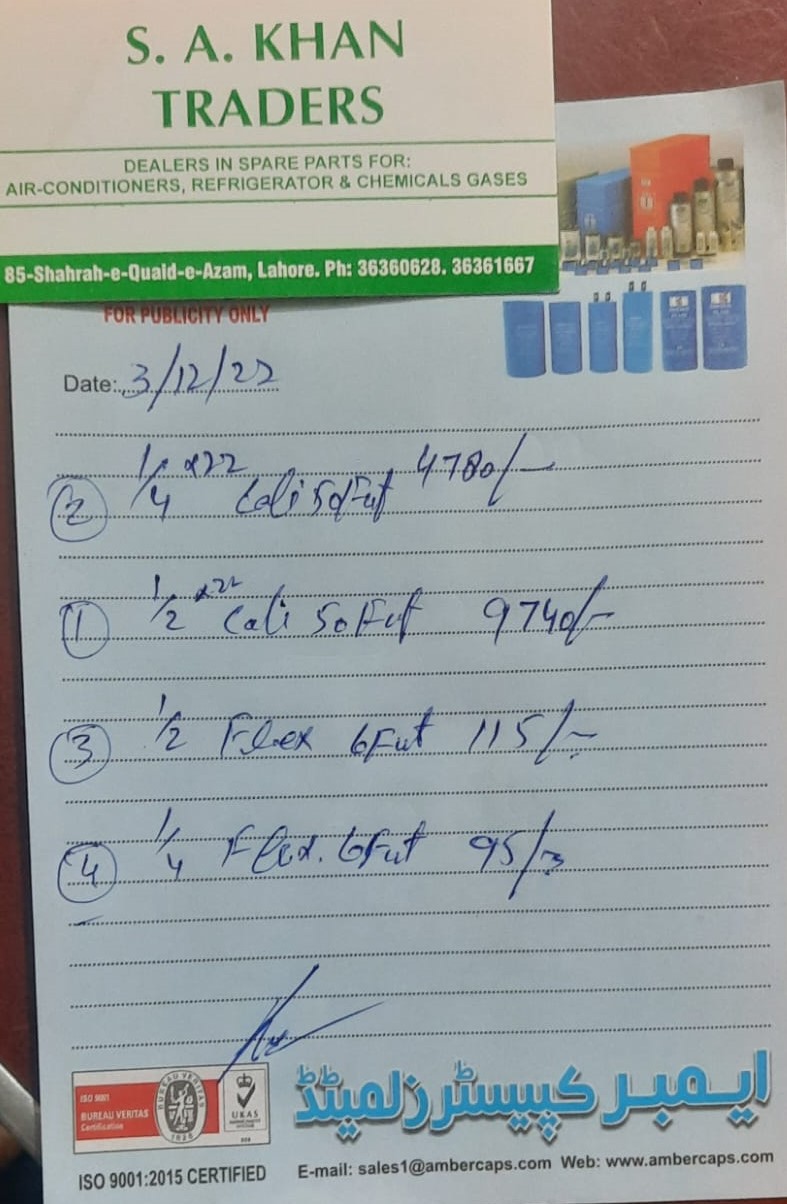 S. A. KHAN
TRADERS
DEALERS IN SPARE PARTS FOR:
AIR-CONDITIONERS, REFRIGERATOR & CHEMICALS GASES
85-Shahrah-e-Quaid-e-Azam, Lahore. Ph: 36360628. 36361667
FOR PUBLICITY ONLY
Date: 3/12/22
② 1/4 x22 Cali 50Fut 4780/-
① 1/2 x22 Cali 50Fut 9740/-
③ 1/2 Flex 6Fut 115/-
④ 1/4 Flex. 6Fut 95/-
ISO 9001
BUREAU VERITAS
Certification
BUREAU VERITAS
1828
UKAS
008
ایمبر کپیسٹرز لمیٹڈ
ISO 9001:2015 CERTIFIED
E-mail: sales1@ambercaps.com Web: www.ambercaps.com